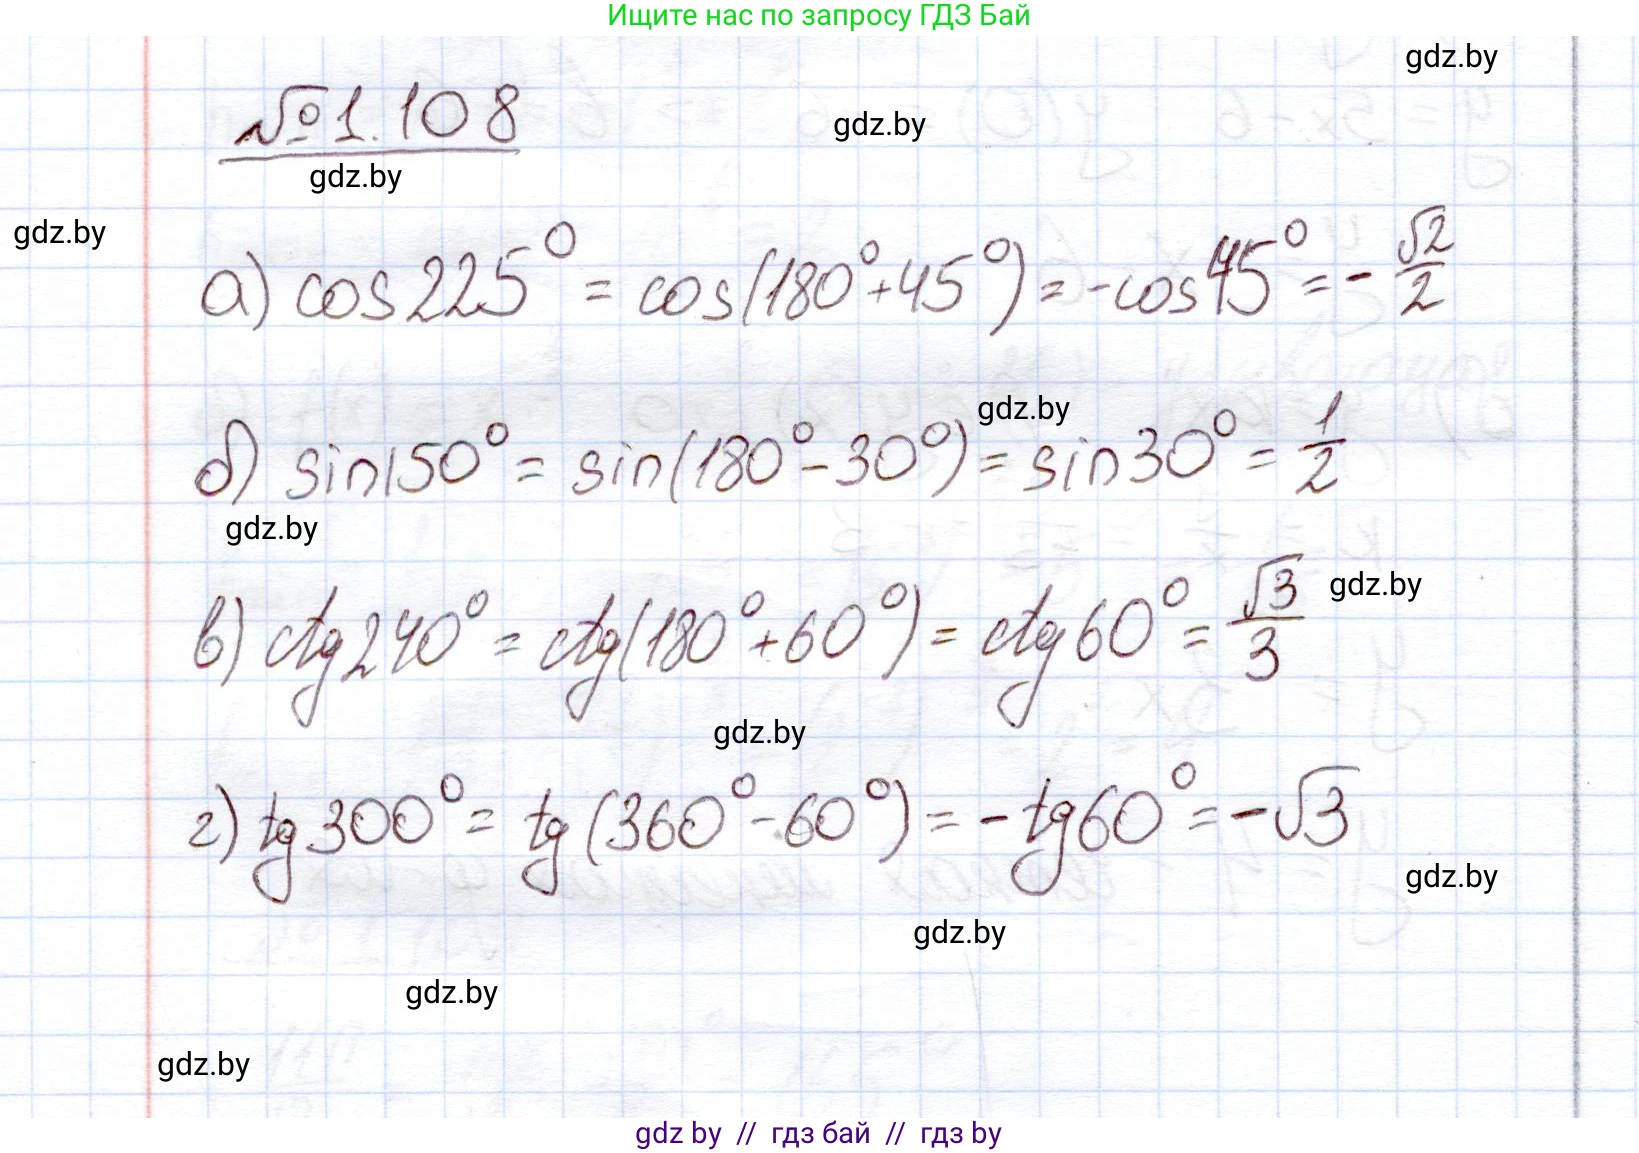 Ищите нас по запросу ГДЗ Бай
gdz.by
№1.108
gdz.by
gdz.by
gdz.by
а) cos225° = cos(180°+45°) = -cos45° = -√2/2
gdz.by
б) sin150° = sin(180°-30°) = sin30° = 1/2
gdz.by
в) ctg240° = ctg(180°+60°) = ctg60° = √3/3
gdz.by
gdz.by
г) tg300° = tg(360°-60°) = -tg60° = -√3
gdz.by
gdz.by
gdz.by
gdz.by
gdz by // гдз бай // гдз by